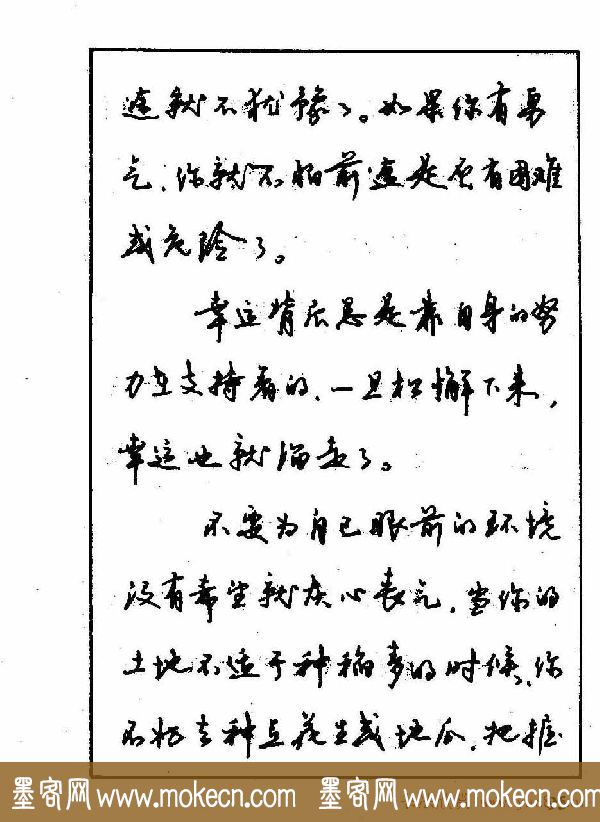 途就不犹豫了。如果你有勇
气，你就不怕前途是否有困难
或危险了。
幸运背后总是靠自身的努
力在支持着的，一旦松懈下来，
幸运也就溜走了。
不要为自己眼前的环境
没有希望就灰心丧气，当你的
土地不适于种稻麦的时候，你
不妨去种点花生或地瓜，把握
墨客网 www.mokecn.com 墨客网 www.mokecn.com